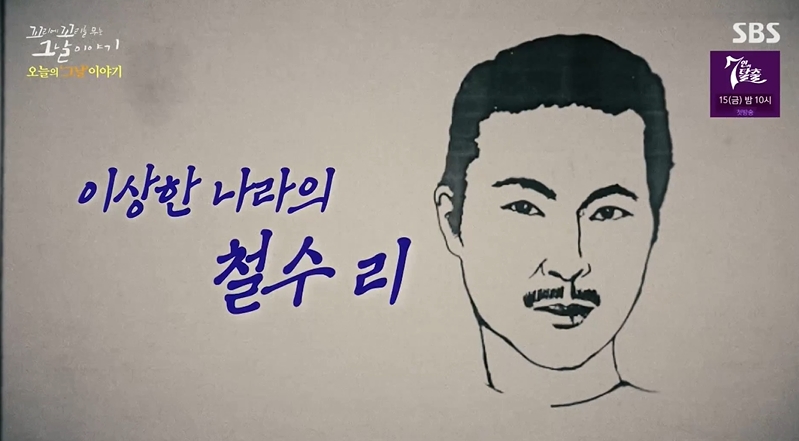 꼬리에 꼬리를 무는
그날 이야기
오늘의 "그날" 이야기
SBS
7인의
탈출
15(금) 밤 10시
첫방송
이상한 나라의
철수 리